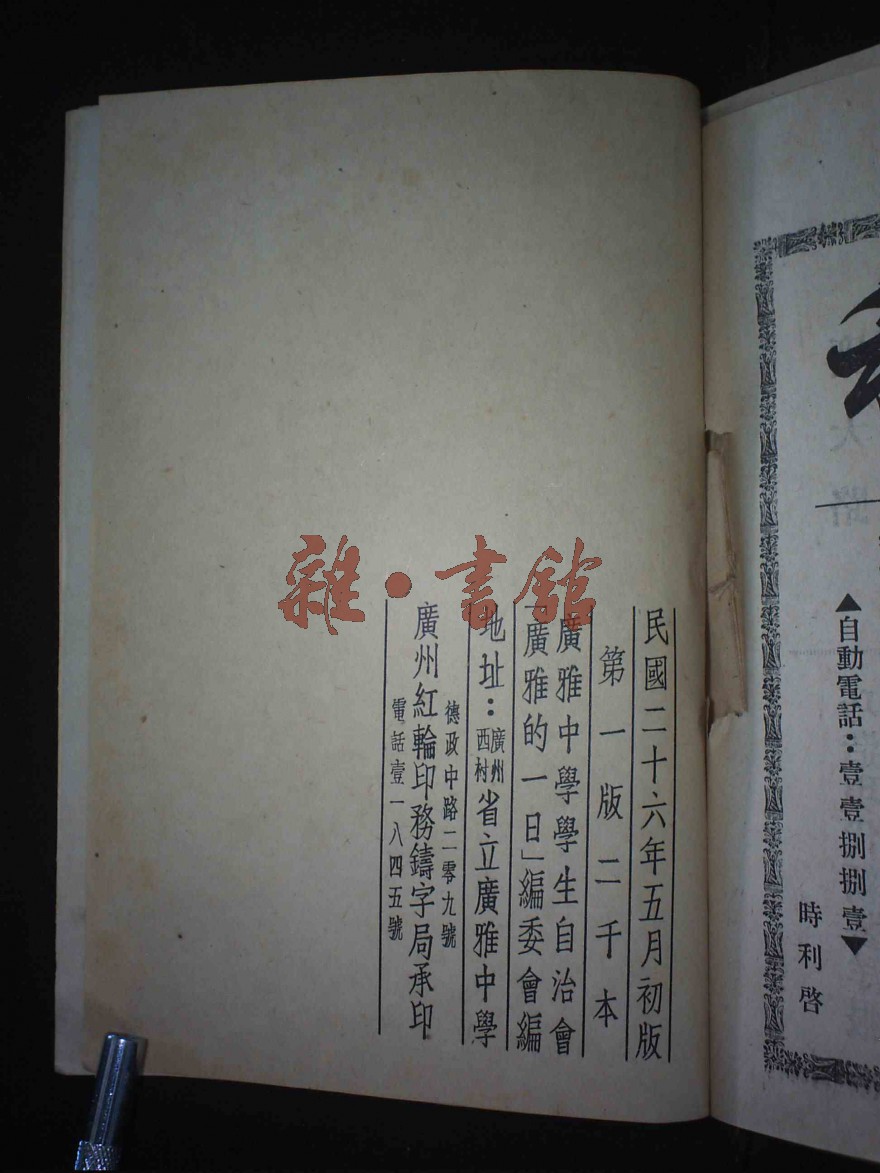 ▲自動電話：壹壹捌捌壹▼
時利啓
民國二十六年五月初版
第一版二千本
廣雅中學學生自治會
「廣雅的一日」編委會編
地址：廣州西村省立廣雅中學
德政中路二零九號
廣州紅輪印務鑄字局承印
電話壹一八四五號
雜·書館